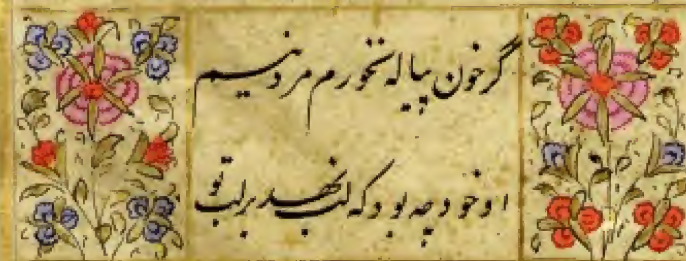 گر خون پیاله نخورم مرد نیم
او خود چه بود که لب نهد بر لب تو